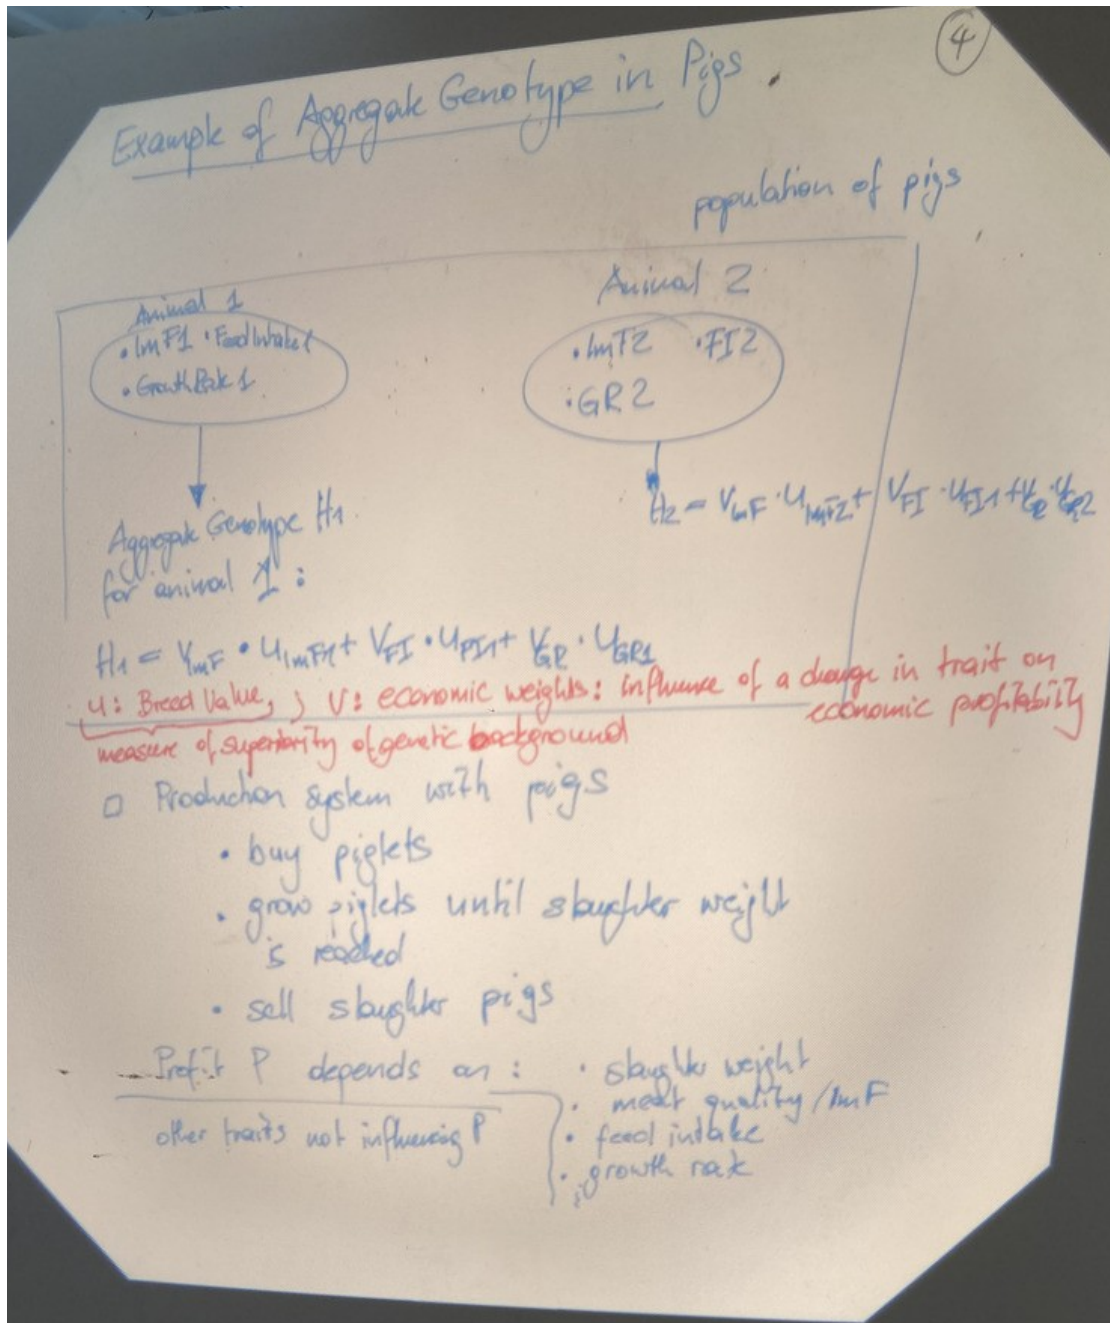 4
Example of Aggregate Genotype in Pigs
population of pigs
Animal 1
• ImF1 • FeedIntake1
• GrowthRate 1
Animal 2
• ImF2 • FI2
• GR2
Aggregate Genotype H1
for animal 1 :
H2 = VImF · uImF2 + VFI · uFI1 + VGR · uGR2
H1 = VImF • uImF1 + VFI • uFI1 + VGR · uGR1
u: Breed Value, ; V: economic weights: influence of a change in trait on
economic profitability
measure of superiority of genetic background
□ Production system with pigs
• buy piglets
• grow piglets until slaughter weight
is reached
• sell slaughter pigs
Profit P depends on : • slaughter weight
• meat quality/ImF
other traits not influencing P • feed intake
• growth rate